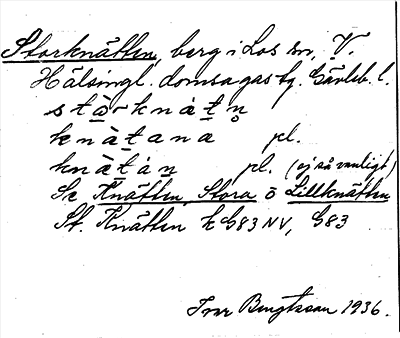 Storknätten, berg i Los sn, V.
Hälsingl. domsagas tg. Gävleb. l.
stå̀rknátn̥
knä̀tana pl.
knä̀tán pl. (ej så vanligt)
Se Knätten, Stora o Lillknätten
St. Knätten k G83 NV, G83
Ivar Bengtsson 1936.